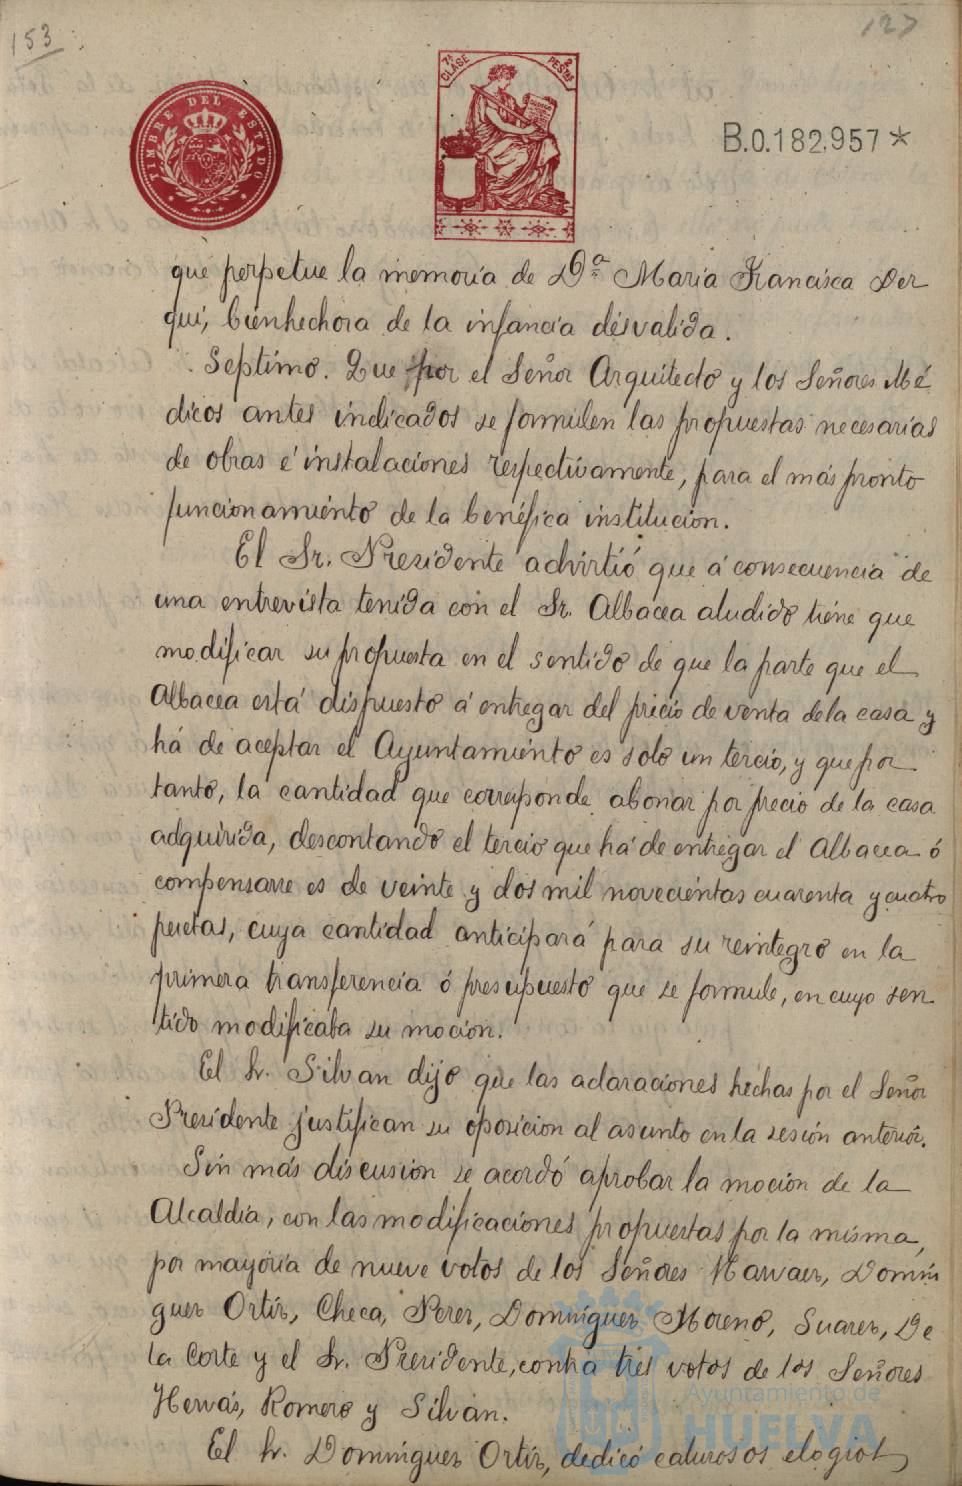 153
127
TIMBRE DEL ESTADO
7ª CLASE
2 PESTAS
B.0.182.957 *
que perpetue la memoria de Dª Maria Francisca Der
qui, bienhechora de la infancia desvalida.
Septimo. Que por el Señor Arquitecto y los Señores Mé
dicos antes indicados se formulen las propuestas necesarias
de obras é instalaciones respectivamente, para el más pronto
funcionamiento de la benéfica institucion.
El Sr. Presidente advirtió que á consecuencia de
una entrevista tenida con el Sr. Albacea aludido tiene que
modificar su propuesta en el sentido de que la parte que el
Albacea está dispuesto á entregar del precio de venta de la casa y
há de aceptar el Ayuntamiento es solo un tercio, y que por
tanto, la cantidad que corresponde abonar por precio de la casa
adquirida, descontando el tercio que há de entregar el Albacea ó
compensarse es de veinte y dos mil novecientas cuarenta y cuatro
pesetas, cuya cantidad anticipará para su reintegro en la
primera transferencia ó presupuesto que se formule, en cuyo sen
tido modificaba su mocion.
El Sr. Silvan dijo que las aclaraciones hechas por el Señor
Presidente justifican su oposicion al asunto en la sesión anterior.
Sin más discusion se acordó aprobar la moción de la
Alcaldía, con las modificaciones propuestas por la misma,
por mayoría de nueve votos de los Señores Narvaez, Domin
guez Ortíz, Checa, Perez, Domínguez Moreno, Suarez, De
la Corte y el Sr. Presidente, contra tres votos de los Señores
Hervás, Romero y Silván.
El Sr. Domínguez Ortíz, dedicó calurosos elogios
Ayuntamiento de
HUELVA